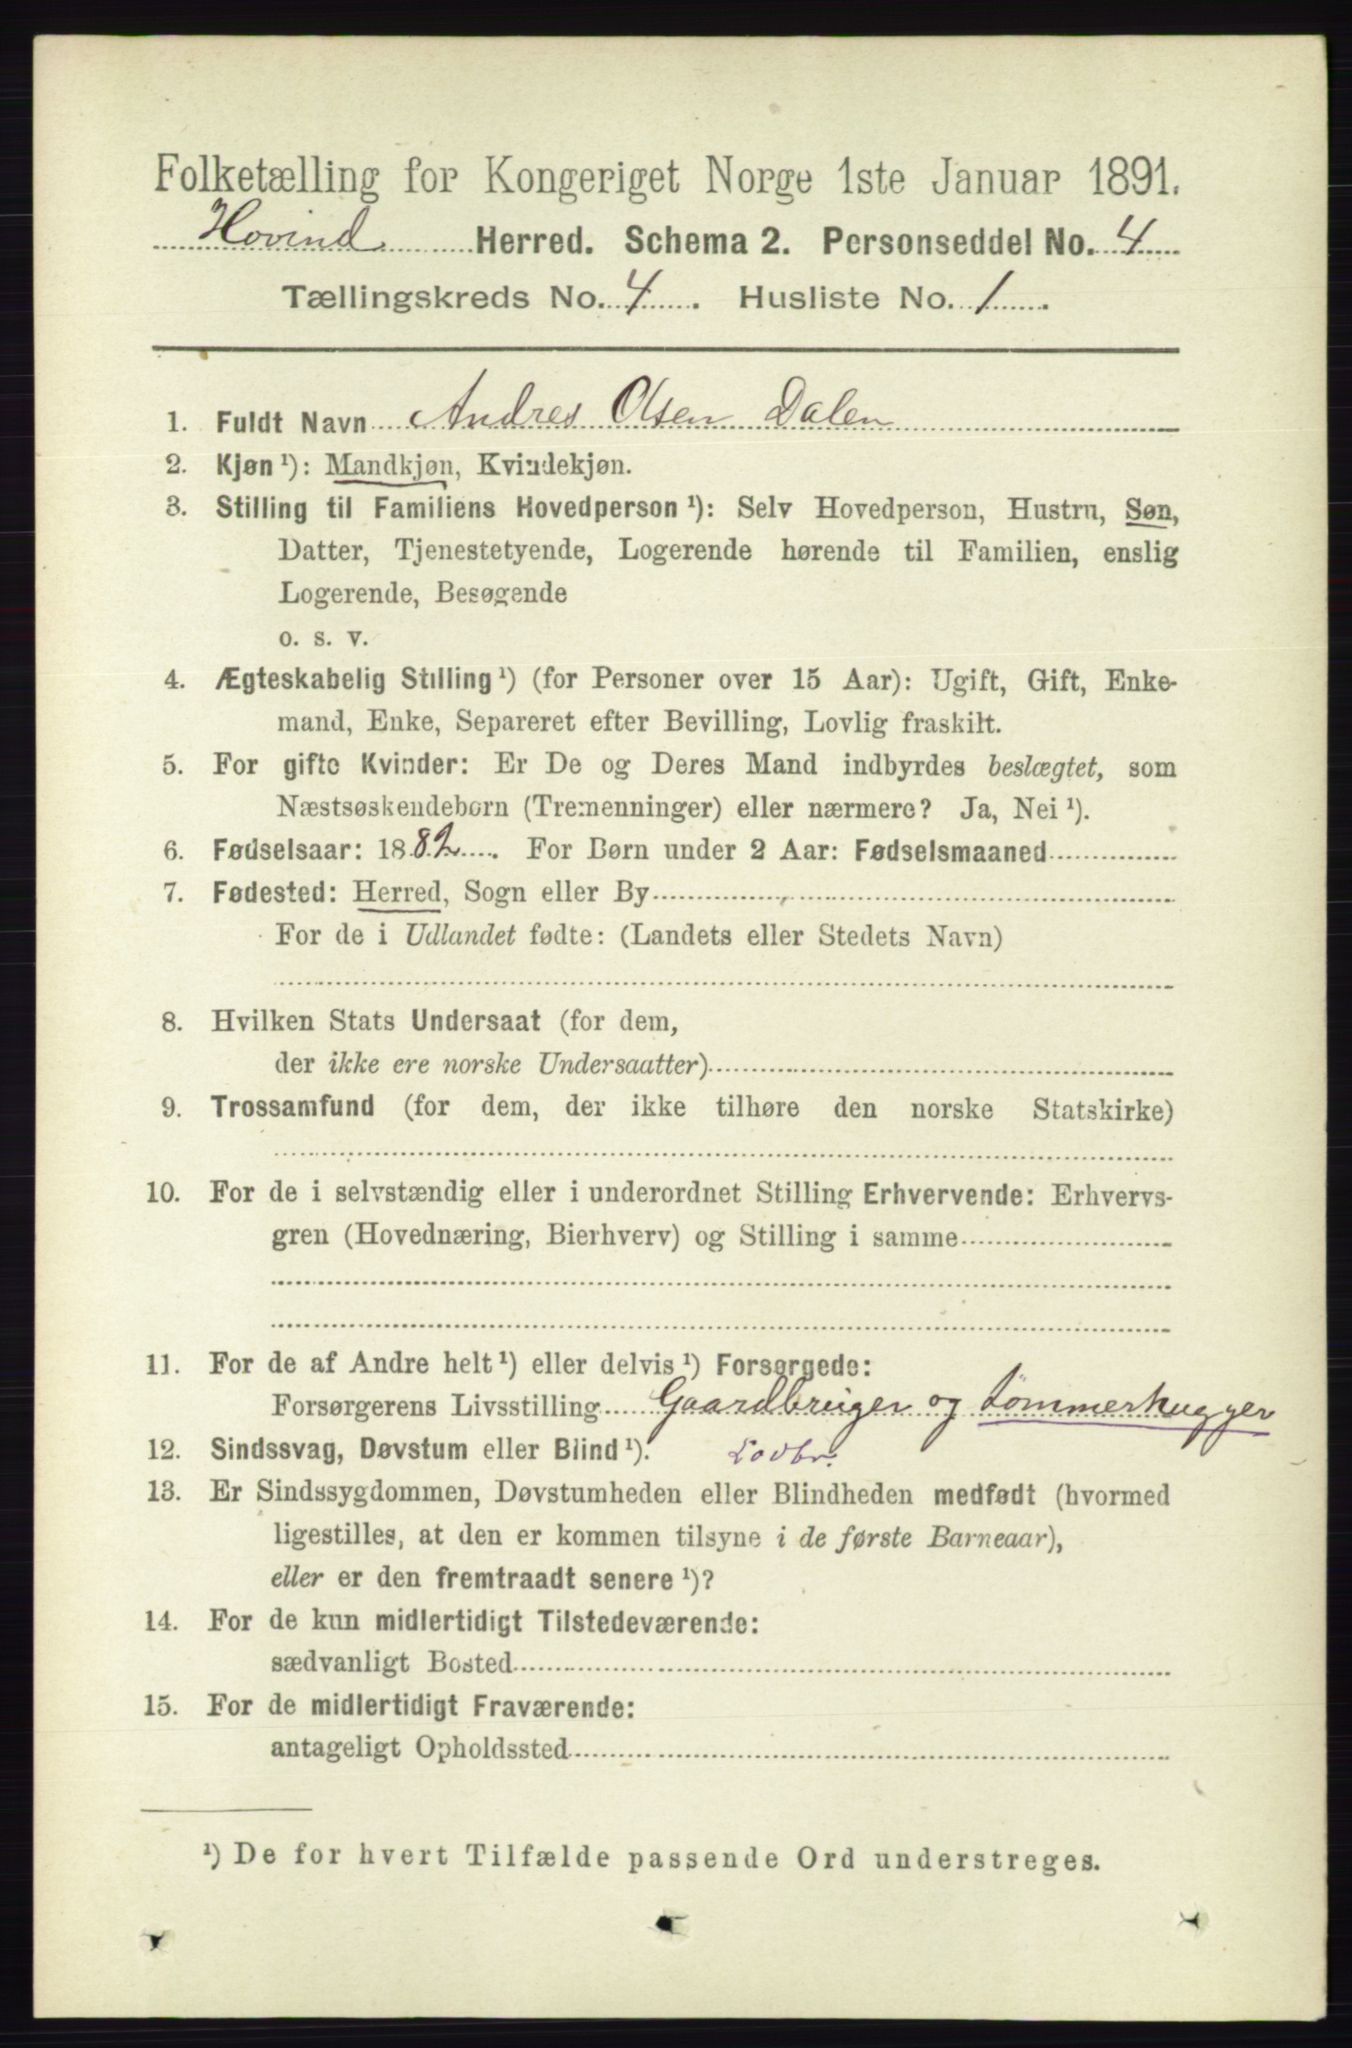 Folketælling for Kongeriget Norge 1ste Januar 1891.
Hovind Herred. Schema 2. Personseddel No. 4
Tællingskreds No. 4. Husliste No. 1.
1. Fuldt Navn Andres Olsen Dalen
2. Kjøn ¹): Mandkjøn, Kvindekjøn.
3. Stilling til Familiens Hovedperson ¹): Selv Hovedperson, Hustru, Søn,
Datter, Tjenestetyende, Logerende hørende til Familien, enslig
Logerende, Besøgende
o. s. v.
4. Ægteskabelig Stilling ¹) (for Personer over 15 Aar): Ugift, Gift, Enke-
mand, Enke, Separeret efter Bevilling, Lovlig fraskilt.
5. For gifte Kvinder: Er De og Deres Mand indbyrdes beslægtet, som
Næstsøskendebørn (Tremenninger) eller nærmere? Ja, Nei ¹).
6. Fødselsaar: 1882. For Børn under 2 Aar: Fødselsmaaned
7. Fødested: Herred, Sogn eller By
For de i Udlandet fødte: (Landets eller Stedets Navn)
8. Hvilken Stats Undersaat (for dem,
der ikke ere norske Undersaatter)
9. Trossamfund (for dem, der ikke tilhøre den norske Statskirke)
10. For de i selvstændig eller i underordnet Stilling Erhvervende: Erhvervs-
gren (Hovednæring, Bierhverv) og Stilling i samme
11. For de af Andre helt ¹) eller delvis ¹) Forsørgede:
Forsørgerens Livsstilling Gaardbruger og Tømmerhugger
12. Sindssvag, Døvstum eller Blind ¹). Lodbr.
13. Er Sindssygdommen, Døvstumheden eller Blindheden medfødt (hvormed
ligestilles, at den er kommen tilsyne i de første Barneaar),
eller er den fremtraadt senere ¹)?
14. For de kun midlertidigt Tilstedeværende:
sædvanligt Bosted
15. For de midlertidigt Fraværende:
antageligt Opholdssted
¹) De for hvert Tilfælde passende Ord understreges.